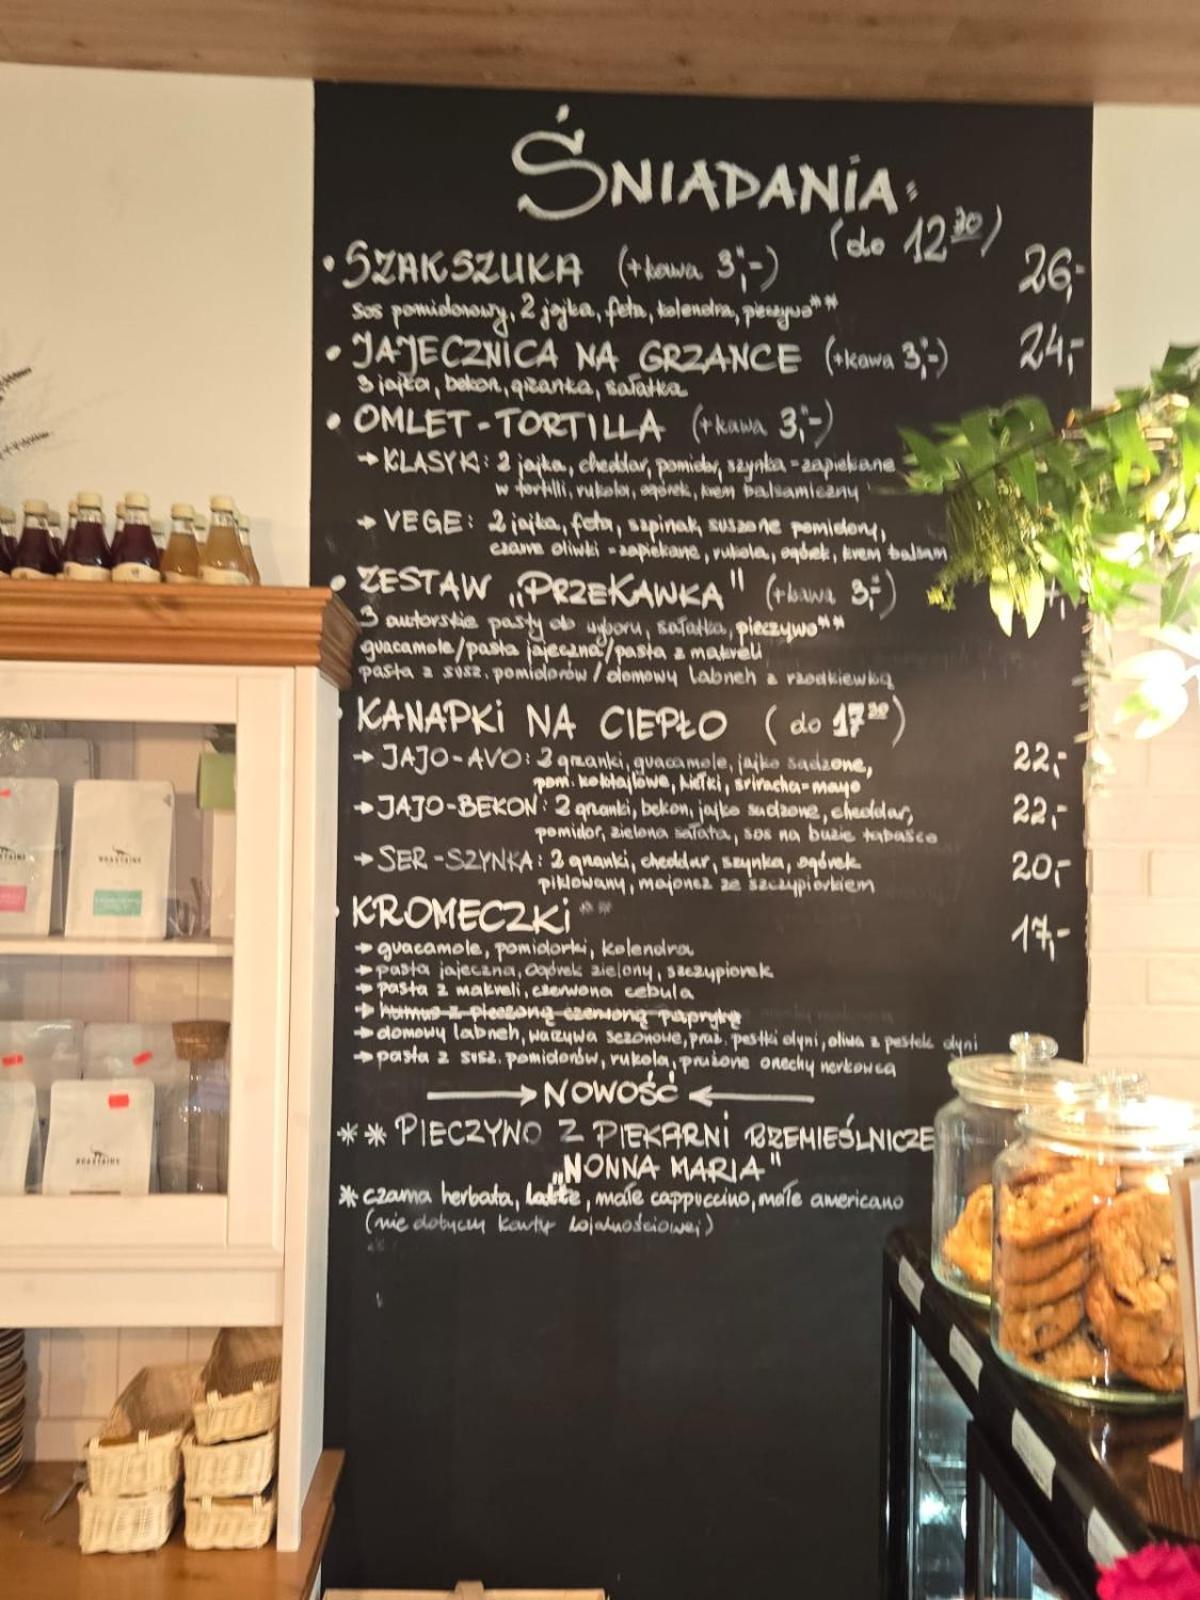 ŚNIADANIA:
(do 12³⁰)
• SZAKSZUKA (+kawa 3,-*) 26,-
sos pomidorowy, 2 jajka, feta, kolendra, pieczywo**
• JAJECZNICA NA GRZANCE (+kawa 3,-*) 24,-
3 jajka, bekon, grzanka, sałatka
• OMLET-TORTILLA (+kawa 3,-*)
→ KLASYK: 2 jajka, cheddar, pomidor, szynka - zapiekane
w tortilli, rukola, ogórek, krem balsamiczny
→ VEGE: 2 jajka, feta, szpinak, suszone pomidory,
czarne oliwki - zapiekane, rukola, ogórek, krem balsam
• ZESTAW „PRZEKAWKA" (+kawa 3,-*)
3 autorskie pasty do wyboru, sałatka, pieczywo**
guacamole/pasta jajeczna/pasta z makreli
pasta z susz. pomidorów / domowy labneh z rzodkiewką
• KANAPKI NA CIEPŁO (do 17³⁰)
→ JAJO-AVO: 2 grzanki, guacamole, jajko sadzone, 22,-
pom. koktajlowe, kiełki, sriracha-mayo
→ JAJO-BEKON: 2 grzanki, bekon, jajko sadzone, cheddar, 22,-
pomidor, zielona sałata, sos na bazie tabasco
→ SER-SZYNKA: 2 grzanki, cheddar, szynka, ogórek 20,-
piklowany, majonez ze szczypiorkiem
• KROMECZKI** 17,-
→ guacamole, pomidorki, kolendra
→ pasta jajeczna, ogórek zielony, szczypiorek
→ pasta z makreli, czerwona cebula
→ humus z pieczoną czerwoną papryką
→ domowy labneh, warzywa sezonowe, praż. pestki dyni, oliwa z pestek dyni
→ pasta z susz. pomidorów, rukola, prażone orzechy nerkowca
→ NOWOŚĆ ←
** PIECZYWO Z PIEKARNI RZEMIEŚLNICZE
„NONNA MARIA"
* czarna herbata, latte, małe cappuccino, małe americano
(nie dotyczy karty lojalnościowej)
ROASTAINS